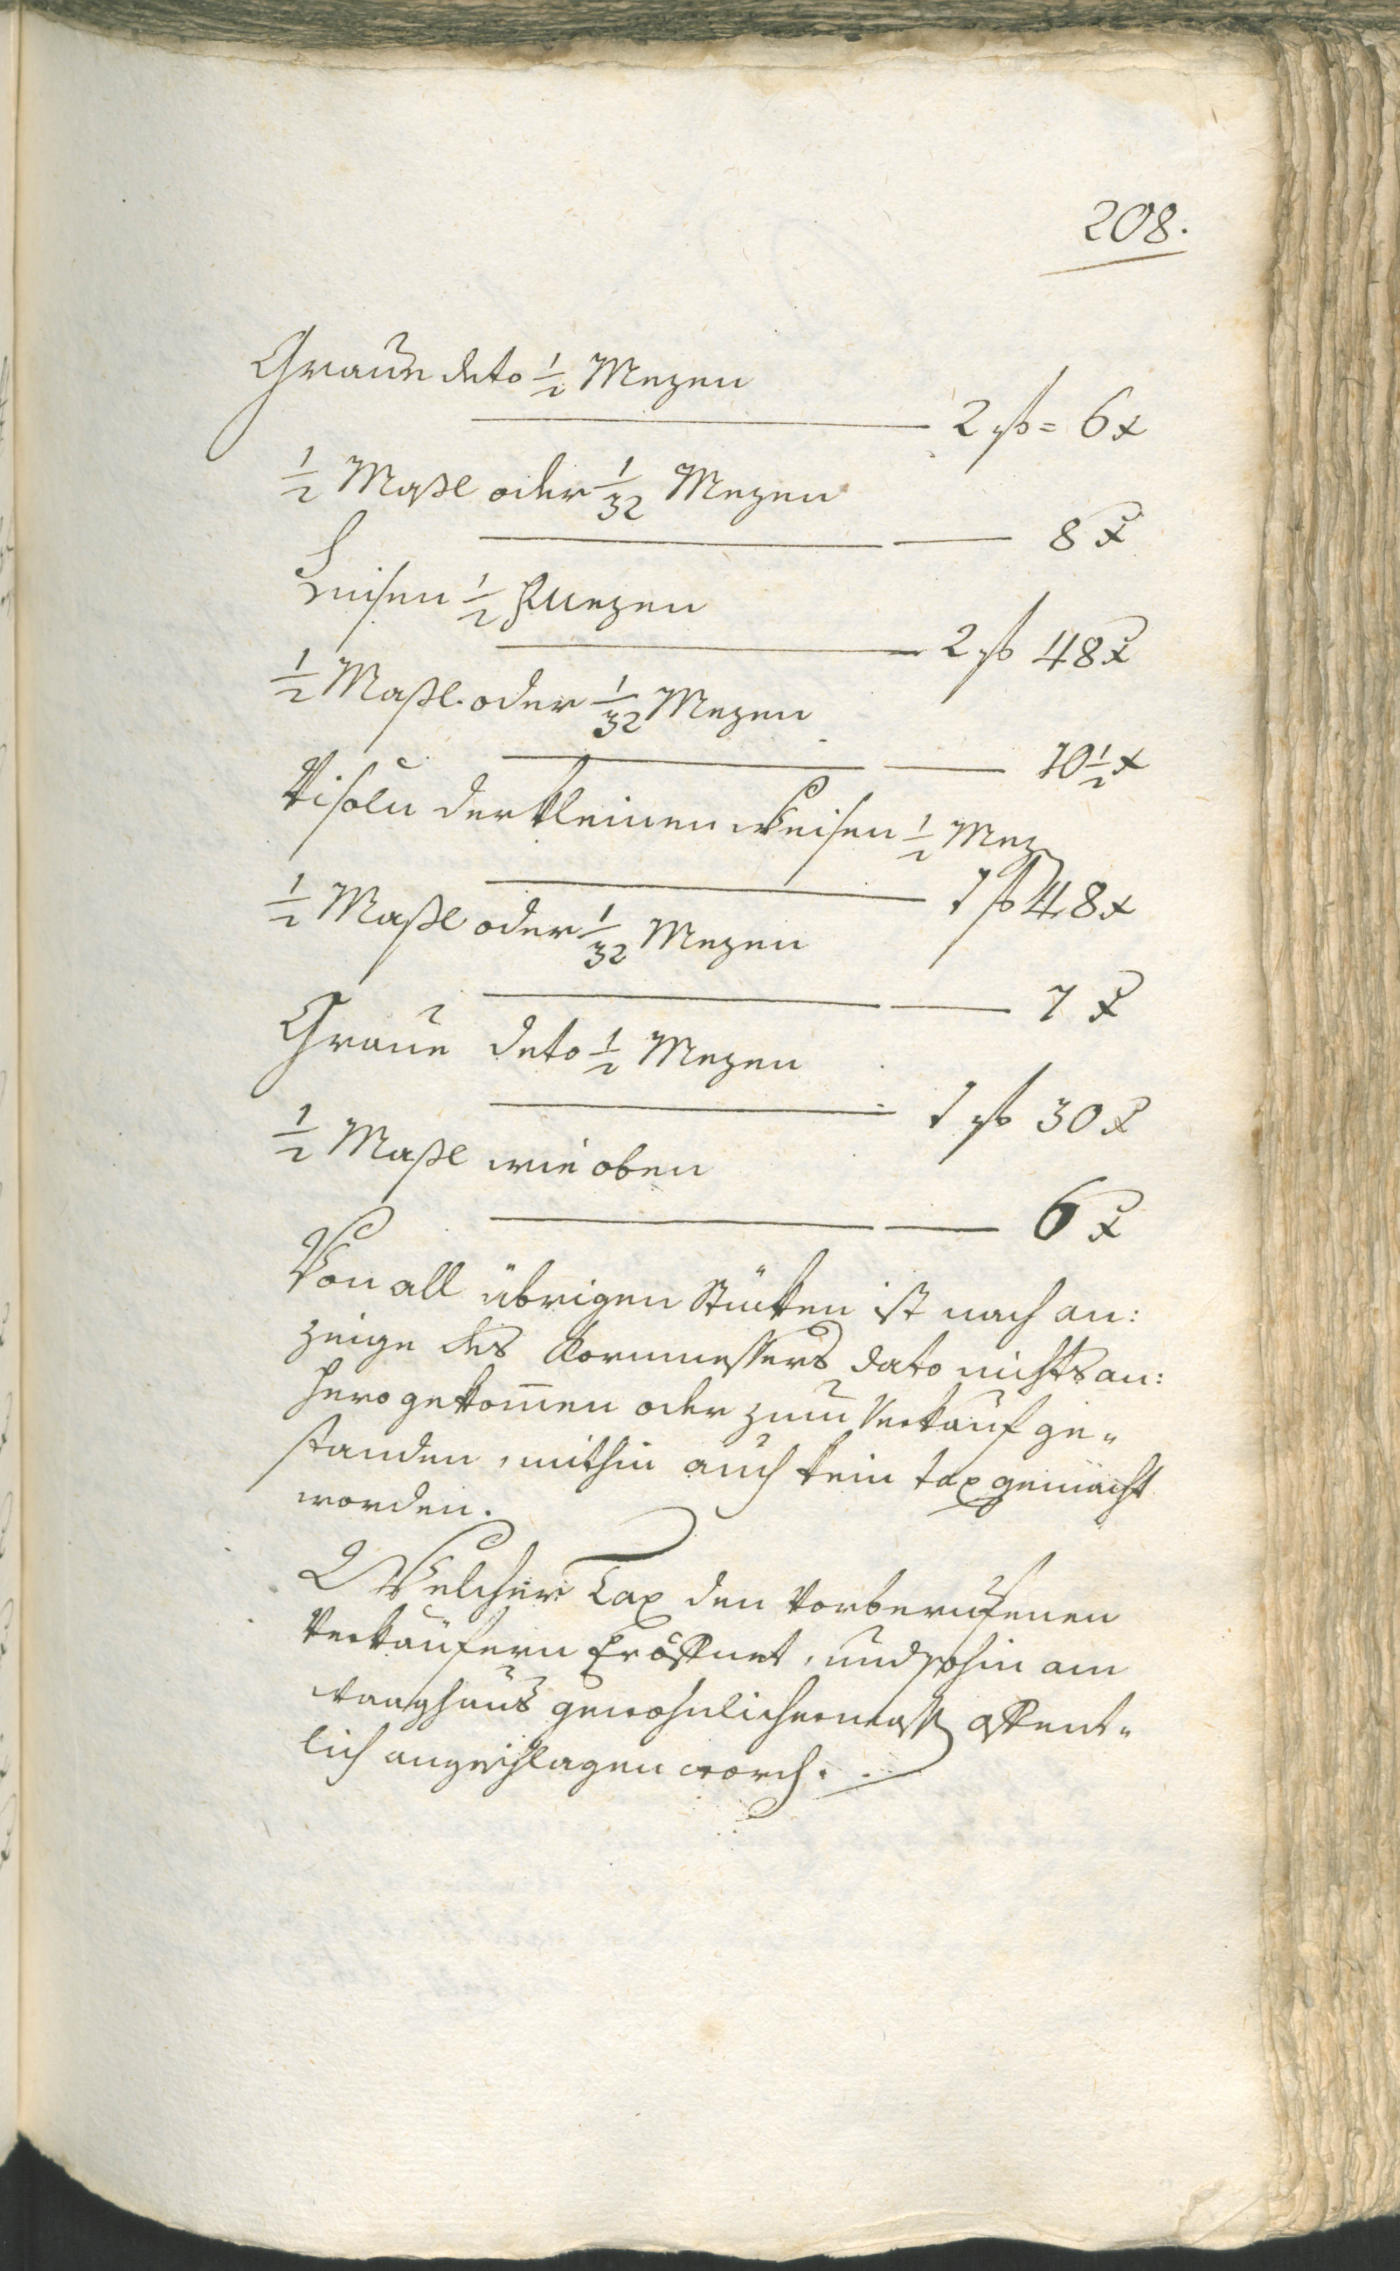 208.
Graue deto 1/2 Mezen
2 f = 6 x
1/2 Maßl oder 1/32 Mezen
8 x
Linsen 1/2 Mezen
2 f 48 x
1/2 Maßl. oder 1/32 Mezen
10 1/2 x
Fisoln der kleinen weisen 1/2 Mez
1 f 48 x
1/2 Maßl oder 1/32 Mezen
7 x
Graue deto 1/2 Mezen
1 f 30 x
1/2 Maßl wie oben
6 x
Von all übrigen Stüken ist nach an:
zeige des Kornmessers dato nichts an:
hero gekomen oder zum Verkauf ge„
standen, mithin auch kein tax gemacht
worden.
Welcher Tax den vorberufenen
Verkäufern eröffnet, und sohin am
waaghaus gewohnlichermassen offent„
lich angeschlagen word.